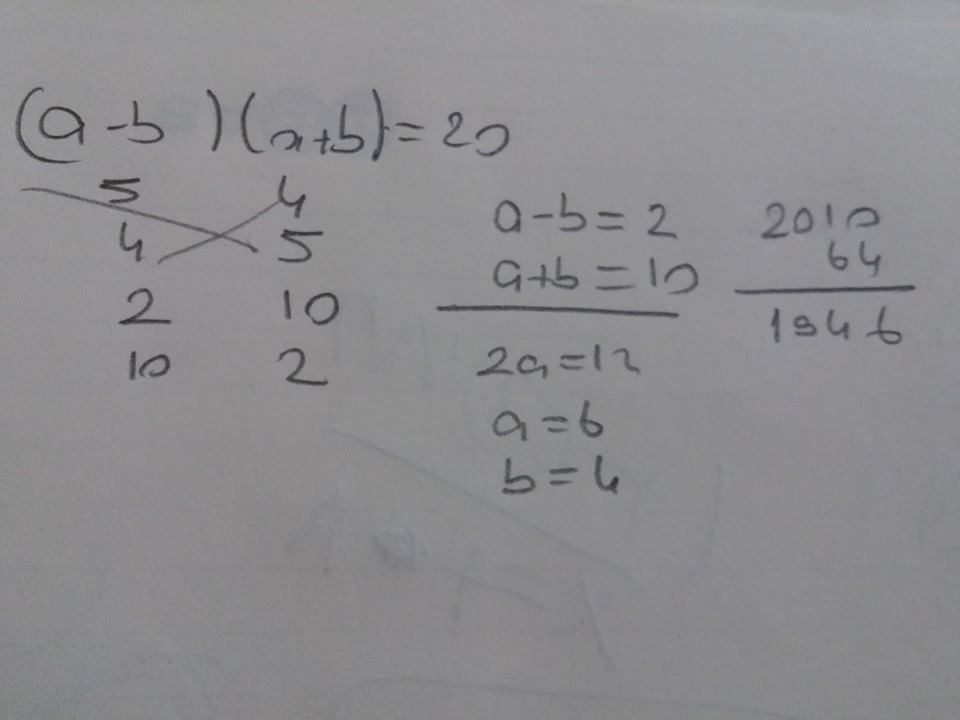 (a-b)(a+b)=20
5 4
4 5
2 10
10 2
a-b=2
a+b=10
2a=12
a=6
b=4
2010
64
1946